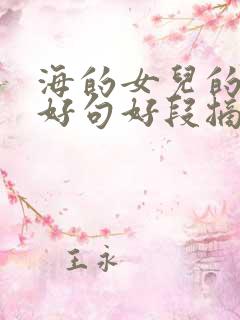 海的女兒的
好句好段摘
王永